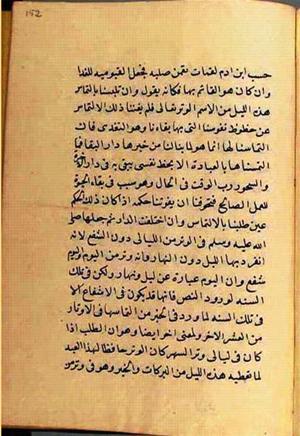 152
حسب ابن ادم لقيمات يقمن صلبه فجعل القيومية للغذا
وان كان هو القائم بها فكانه يقول وان تلبسنا بالتماس
هذه الليلة من الاسم الوتر تعالى فلم يغننا ذلك الالتماس
عن حظوظ نفوسنا التي بها بقاءنا وهو التغذي فان
التماسنا لها انما هو لما ينالنا من خيرها دار البقا فما
التمسناها بالعبادة الا بحظ نفسي نبقى به في دار
والسحور رب الوقت في الحال وهو سبب في بقاء الحيوة
للعمل الصالح فتحوفنا ان يفوتنا حكمه اذ كان ذلك الحكم
عين طلبنا بالالتماس وان اختلفت الدار ثم جعلها صلى
الله عليه وسلم في الوتر من الليالى دون الشفع لانه
انفرد بها الليل دون النهار لانه وتر من اليوم واليوم
شفع وان اليوم عبارة عن ليل ونهار ولكن في تلك
السنة لورود النص فانها قد يكون في الاشفاع الا
في تلك السنة لما ورد في الخبر من التماسها في الاوتار
من العشر الاخر ولمعنى اخر ايضا وهو ان الطلب اذا
كان في ليالى وتر الشهر كان الوتر حافظا لهذا العبد
لما تعطيه هذه الليلة من البركات والخير وهو في وتر من